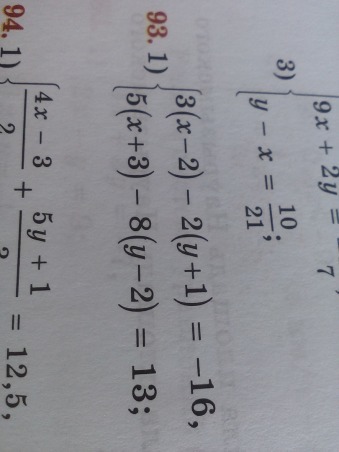 9x + 2y =
3) y − x = 10/21;
93. 1) 3(x−2) − 2(y+1) = −16,
5(x+3) − 8(y−2) = 13;
94. 1) (4x − 3)/2 + (5y + 1)/ = 12,5,